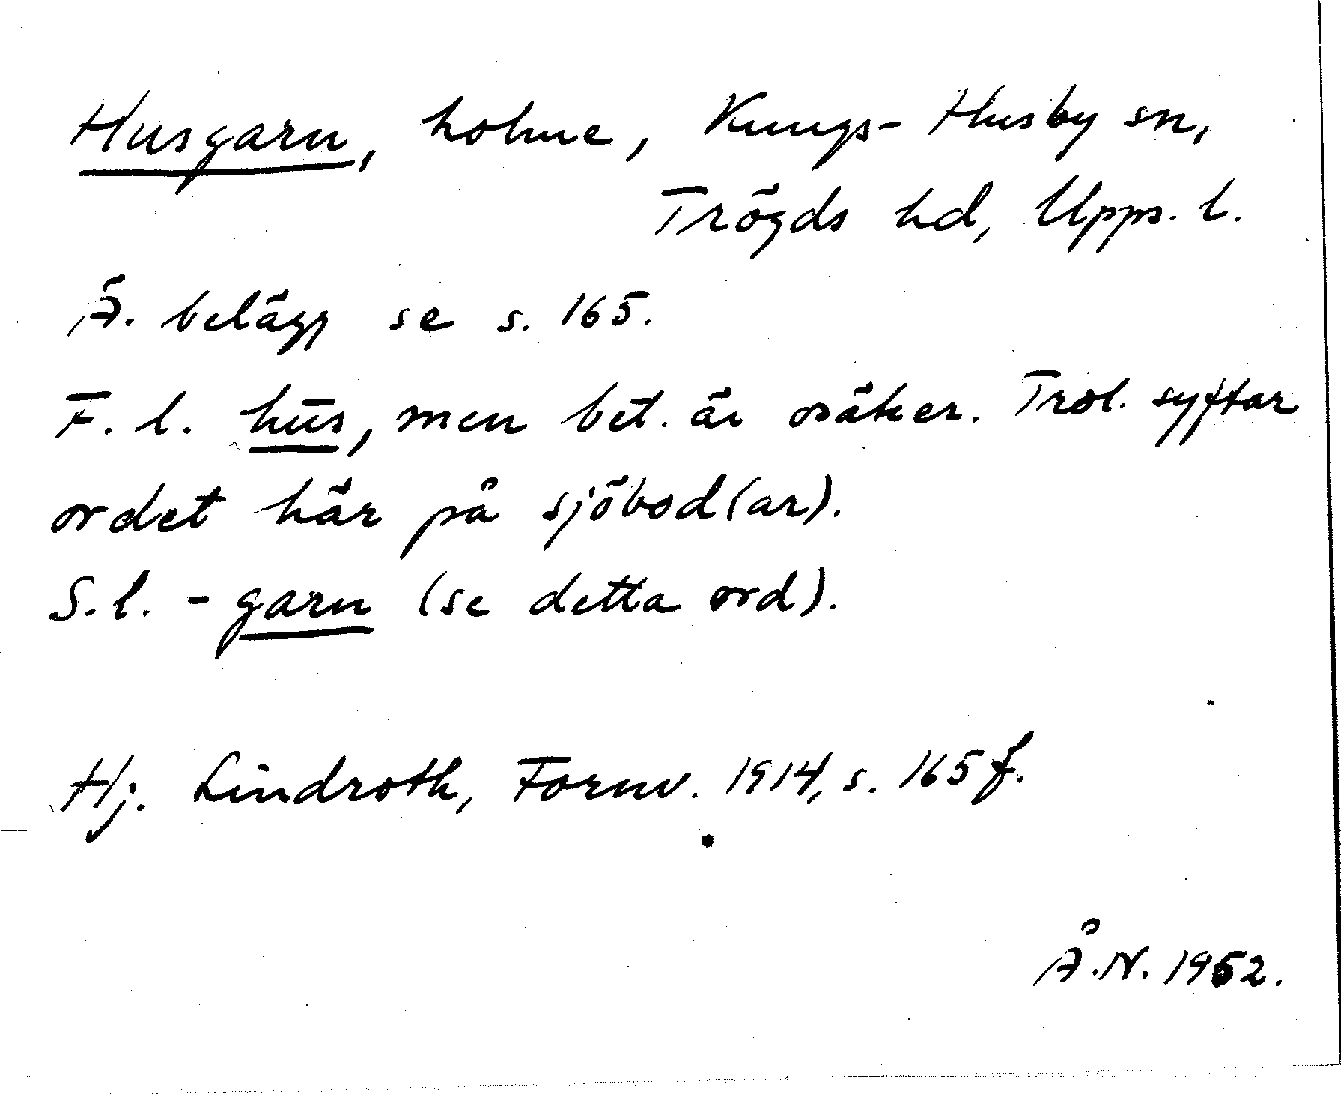 Husgarn, holme, Kungs-Husby sn,
Trögds hd, Upps. l.
Ä. belägg se s. 165.
F. l. hūs, men bet. är osäker. Trol. syftar
ordet här på sjöbod(ar).
S. l. -garn (se detta ord).
Hj. Lindroth, Fornv. 1914, s. 165 f.
Å. N. 1952.